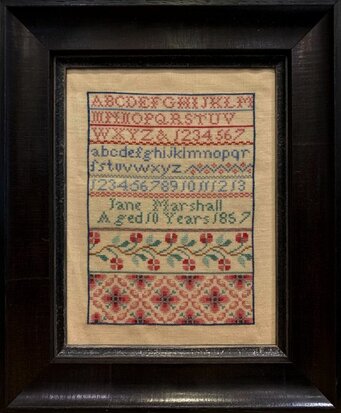 ABCDEFGHIJKLM
MNNOPQRSTUV
WXYZ&1234567
abcdefghijklmnopqr
ſstuvwxyz
12345678910111213
Jane Marshall
Aged 10 Years 1867